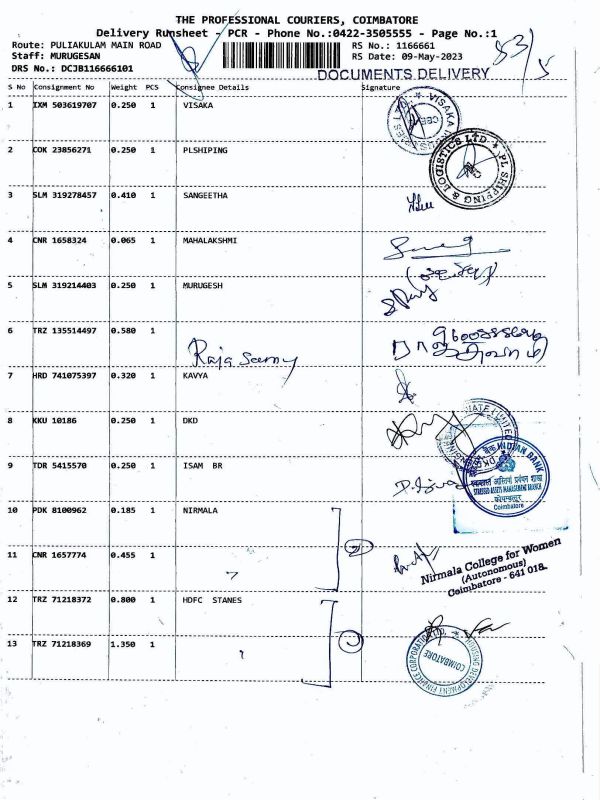 THE PROFESSIONAL COURIERS, COIMBATORE
Delivery Runsheet - PCR - Phone No.:0422-3505555 - Page No.:1
Route: PULIAKULAM MAIN ROAD RS No.: 1166661
Staff: MURUGESAN RS Date: 09-May-2023
DRS No.: DCJB116666101
DOCUMENTS DELIVERY
S No Consignment No Weight PCS Consignee Details Signature
1 IXM 503619707 0.250 1 VISAKA
2 COK 23856271 0.250 1 PLSHIPING
PL SHIPPING & LOGISTICS LTD
3 SLM 319278457 0.410 1 SANGEETHA
4 CNR 1658324 0.065 1 MAHALAKSHMI
5 SLM 319214403 0.250 1 MURUGESH
6 TRZ 135514497 0.580 1
Raja Samy
7 HRD 741075397 0.320 1 KAVYA
8 KKU 10186 0.250 1 DKD
9 TDR 5415570 0.250 1 ISAM BR
INDIAN BANK
STRESSED ASSETS MANAGEMENT BRANCH
कोयम्बत्तूर
Coimbatore
10 PDK 8100962 0.185 1 NIRMALA
2
11 CNR 1657774 0.455 1
Nirmala College for Women
(Autonomous)
Coimbatore - 641 018.
12 TRZ 71218372 0.800 1 HDFC STANES
13 TRZ 71218369 1.350 1
HOUSING DEVELOPMENT FINANCE CORPORATION LTD.
COIMBATORE